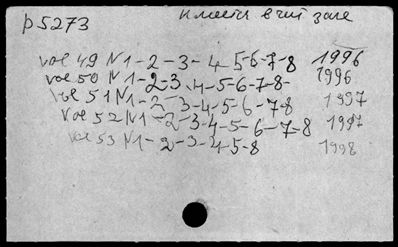 p5273
имеется в чит зале
vol 49 N1-2-3-4-5-6-7-8 1996
vol 50 N1-2-3-4-5-6-7-8- 1996
vol 51 N1-2-3-4-5-6-7-8 1997
vol 52 N1-2-3-4-5-6-7-8 1997
vol 53 N1-2-3-4-5-8 1998